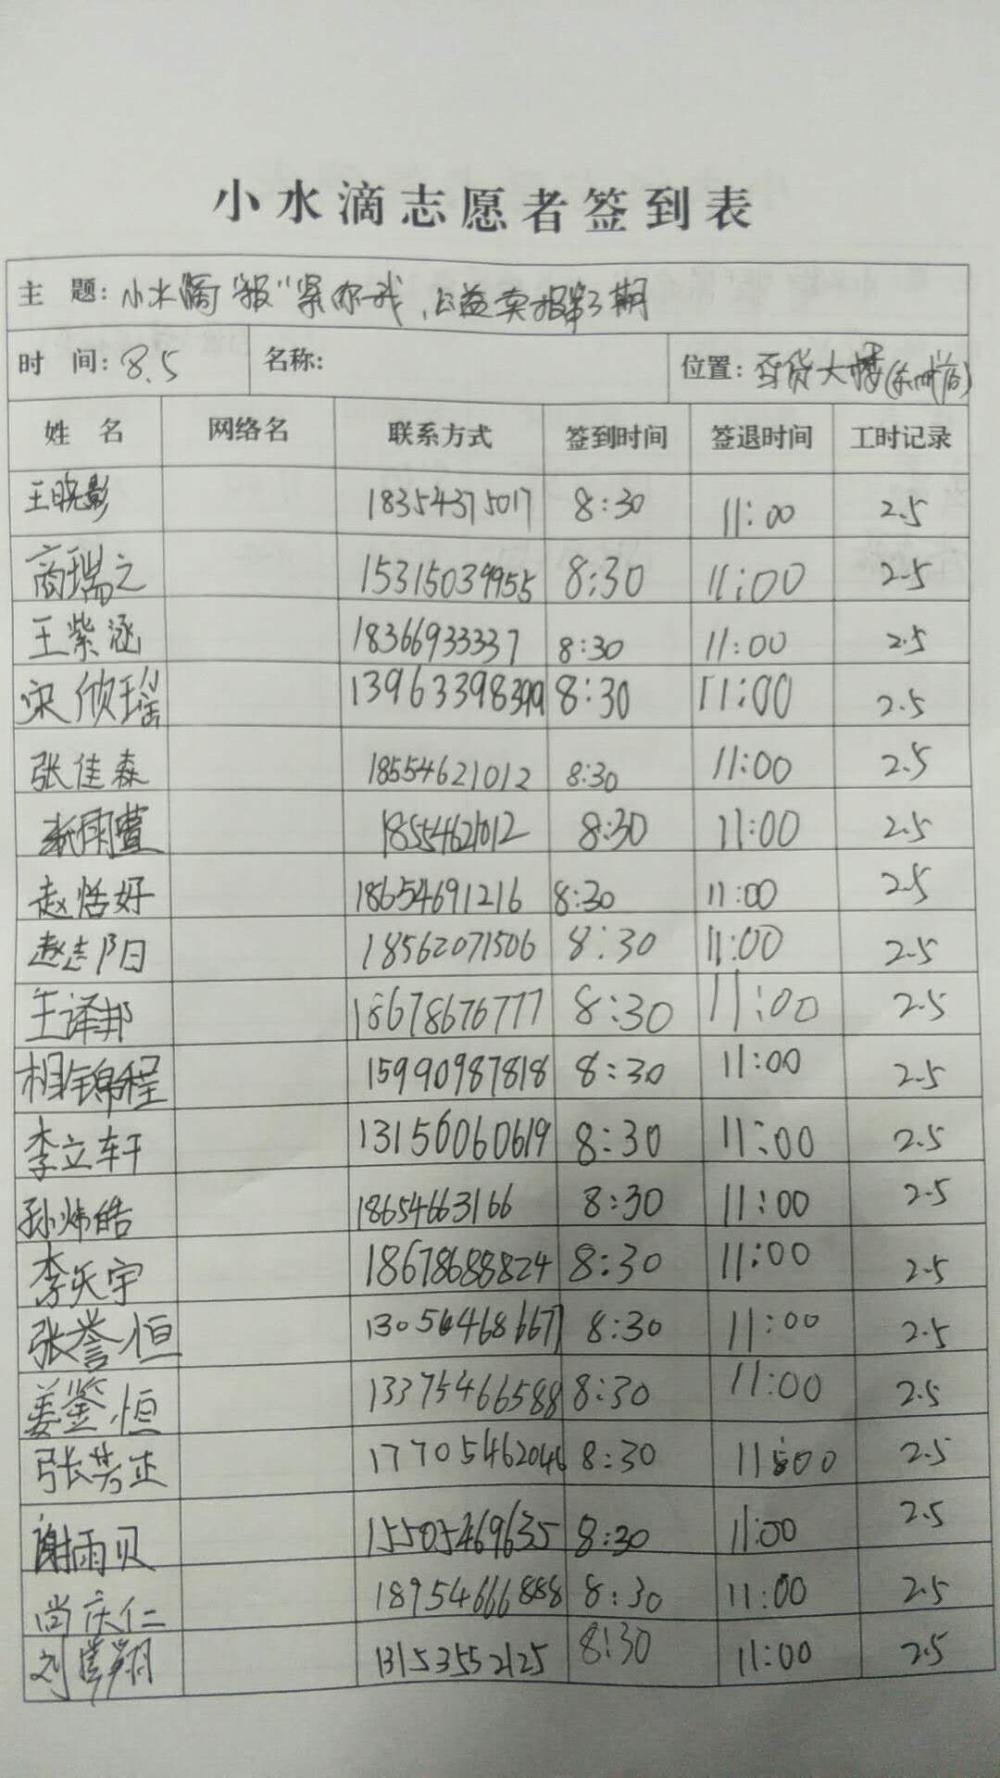 小水滴志愿者签到表
主 题: 小水滴"报"紧你我,公益卖报第3期
时 间: 8.5 名称: 位置: 百货大楼
姓 名 网络名 联系方式 签到时间 签退时间 工时记录
王晓影 18354375017 8:30 11:00 2.5
商瑞之 15315039955 8:30 11:00 2.5
王紫涵 18366933337 8:30 11:00 2.5
宋欣瑶 13963398399 8:30 11:00 2.5
张佳森 18554621012 8:30 11:00 2.5
张雨萱 18554621012 8:30 11:00 2.5
赵恬好 18654691216 8:30 11:00 2.5
赵志阳 18562071506 8:30 11:00 2.5
王译邦 18678676777 8:30 11:00 2.5
相锦程 15990987818 8:30 11:00 2.5
李立轩 13156060619 8:30 11:00 2.5
孙炜皓 18654663166 8:30 11:00 2.5
李沃宇 18678688824 8:30 11:00 2.5
张誉恒 13056468667 8:30 11:00 2.5
姜鉴恒 13375466588 8:30 11:00 2.5
张芳正 17705462046 8:30 11:00 2.5
谢雨贝 15505469635 8:30 11:00 2.5
尚庆仁 18954666888 8:30 11:00 2.5
刘 翔 13153552125 8:30 11:00 2.5